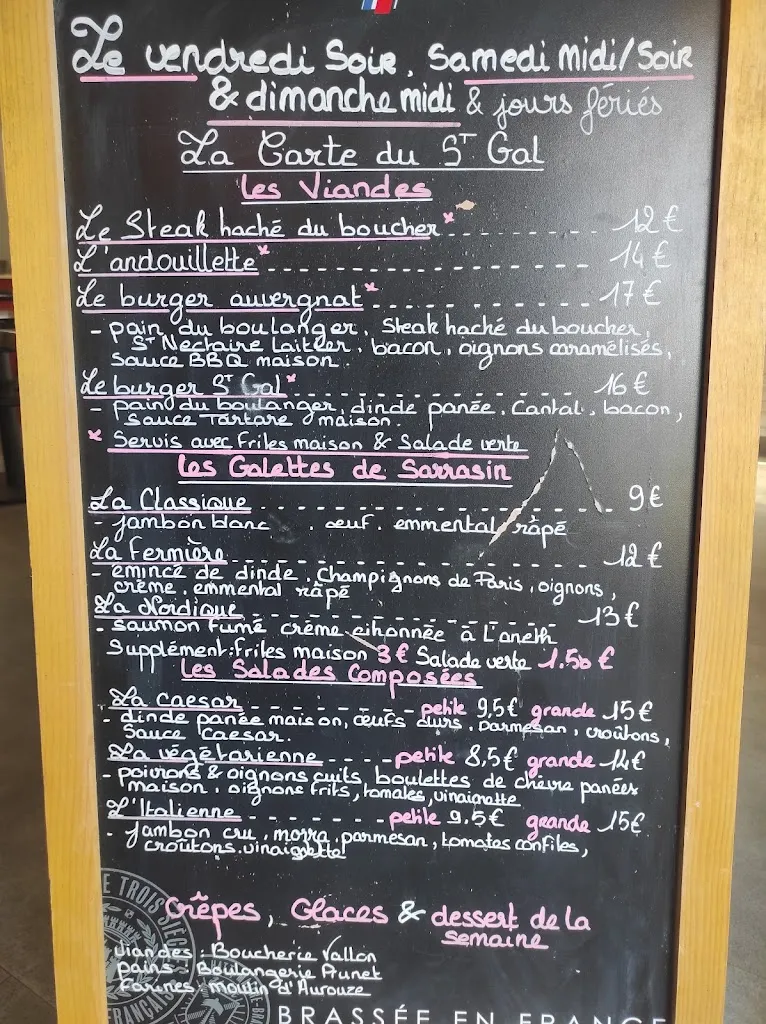 Le vendredi Soir, Samedi midi/Soir
& dimanche midi & jours fériés
La Carte du St Gal
Les Viandes
Le Steak haché du boucher* 12€
L'andouillette* 14€
Le burger auvergnat* 17€
- pain du boulanger, Steak haché du boucher,
St Nectaire laitier, bacon, oignons caramélisés,
Sauce BBQ maison.
Le burger St Gal* 16€
- pain du boulanger, dinde panée, Cantal, bacon,
Sauce Tartare maison.
* Servis avec Frites maison & Salade verte
Les Galettes de Sarrasin
La Classique 9€
- jambon blanc, œuf, emmental râpé
La Fermière 12€
- émincé de dinde, Champignons de Paris, oignons,
crème, emmental râpé
La Nordique 13€
- saumon fumé crème citronnée à L'aneth
Supplément: Frites maison 3€ Salade verte 1.50€
Les Salades Composées
La caesar petite 9,5€ grande 15€
- dinde panée maison, œufs durs, parmesan, croûtons,
Sauce Caesar.
La végétarienne petite 8,5€ grande 14€
- poivrons & oignons cuits, boulettes de chèvre panées
maison, oignons frits, tomates, vinaigrette
L'Italienne petite 9.5€ grande 15€
- Jambon cru, mozza, parmesan, tomates confites,
croûtons, vinaigrette
Crêpes, Glaces & dessert de la
semaine
viandes: Boucherie Vallon
pains: Boulangerie Prunet
Farines: moulin d'Aurouze
E TROIS SIÈC
FRANÇAIS
BRASSÉE EN FRANCE